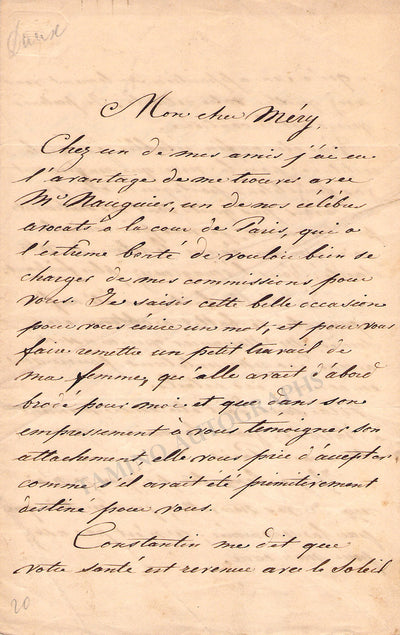 Mon cher Méry,
Chez un de mes amis j'ai eu
l'avantage de me trouver avec
Mr Nauguier, un de nos célèbres
avocats à la cour de Paris, qui a
l'extrême bonté de vouloir bien se
charger de mes commissions pour
vous. Je saisis cette belle occasion
pour vous écrire un mot, et pour vous
faire remettre un petit travail de
ma femme, qu'elle avait d'abord
brodé pour moi et que dans son
empressement à vous témoigner son
attachement elle vous prie d'accepter
comme s'il avait été primitivement
destiné pour vous.
Constantin me dit que
votre santé est revenue avec le Soleil
TAMINO AUTOGRAPHS
20